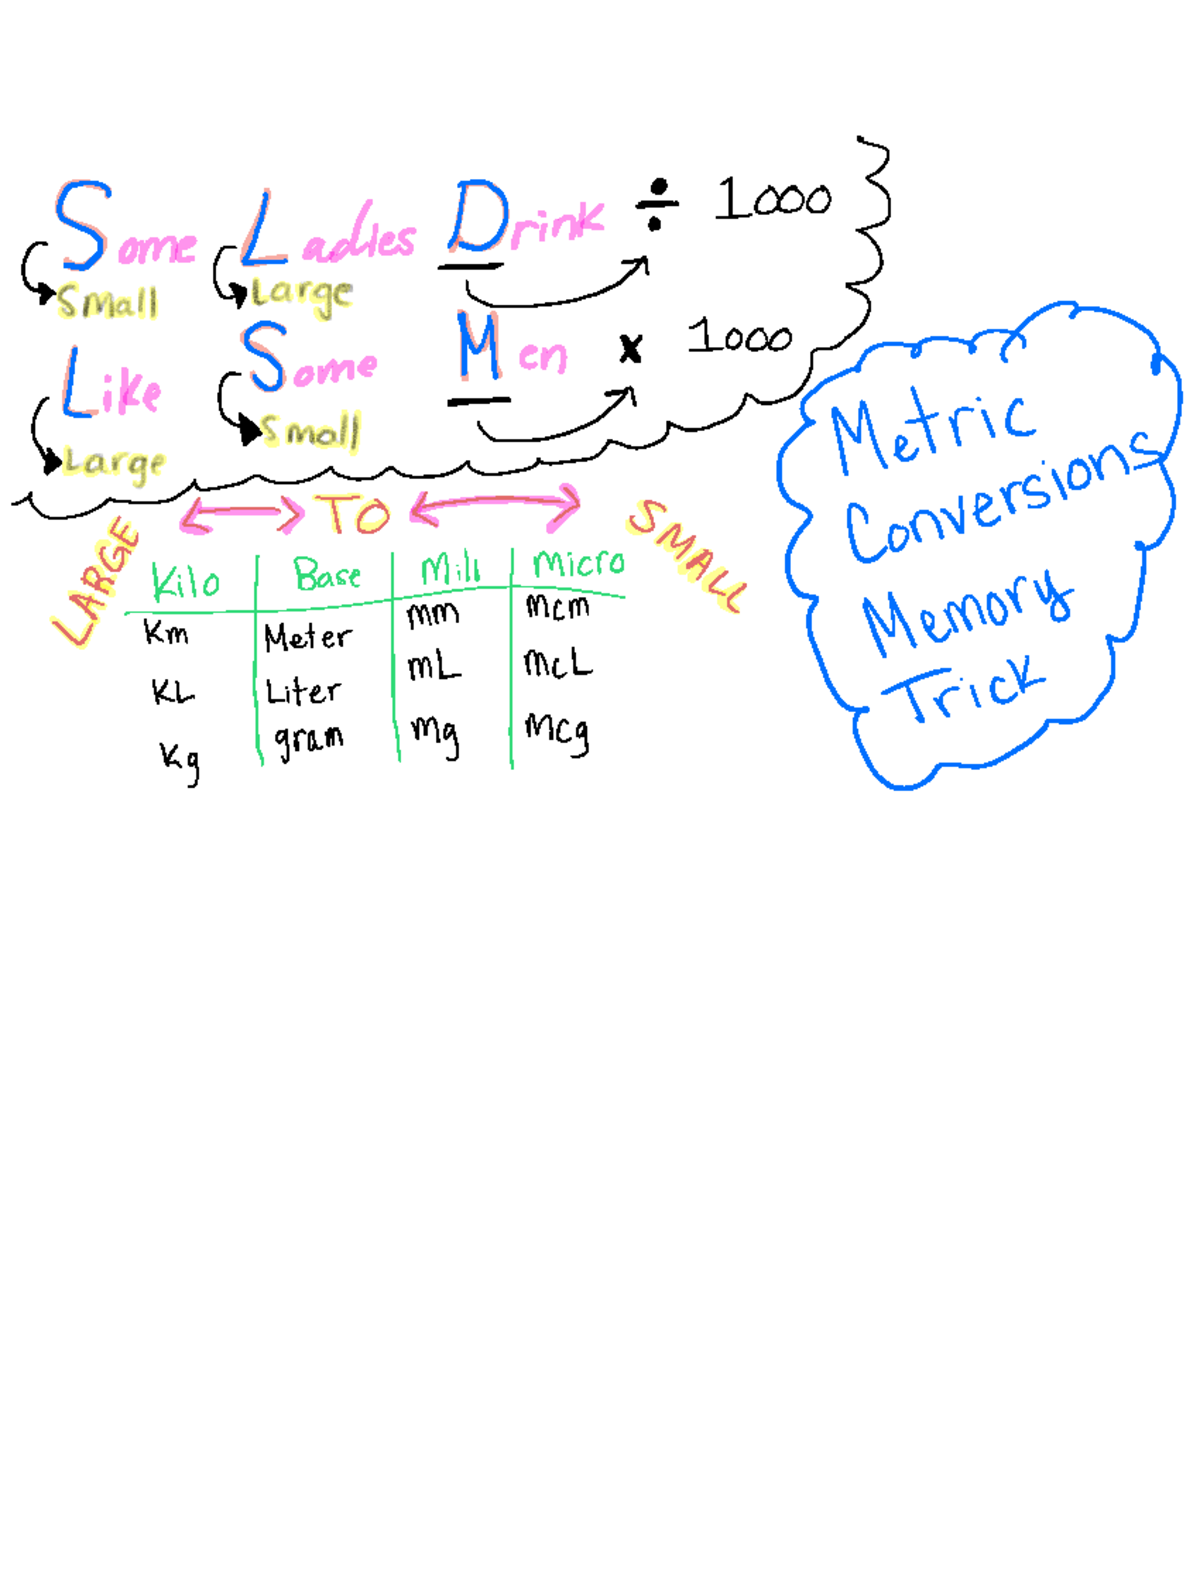 Some Ladies Drink ÷ 1000
Small Large
Like Some Men x 1000
Large Small
LARGE TO SMALL
Kilo Base Milli Micro
Km Meter mm mcm
KL Liter mL mcL
Kg gram mg mcg
Metric
Conversions
Memory
Trick